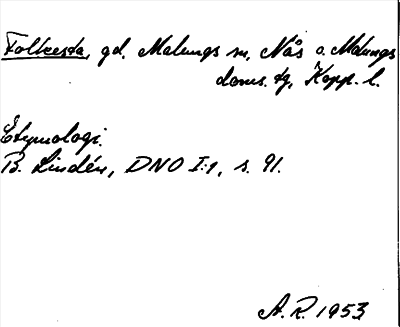 Folkesta, gd. Malungs sn, Nås o. Malungs
doms. tg, Kopp. l.
Etymologi.
B. Lindén, DNO I:1, s. 91.
A. R. 1953